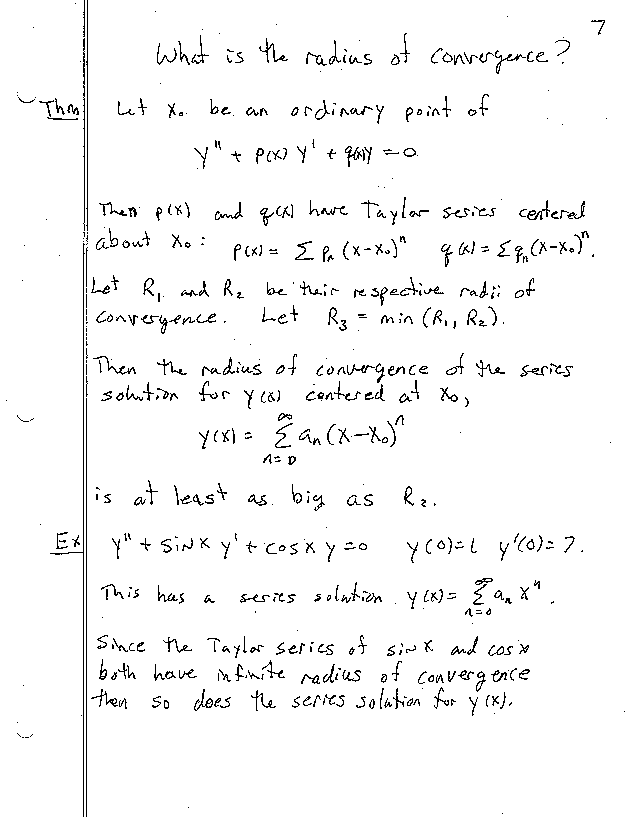 7
What is the radius of convergence?
Thm Let x₀ be an ordinary point of
y" + p(x) y' + q(x)y = 0
Then p(x) and q(x) have Taylor series centered
about x₀: p(x) = Σ pₙ (x-x₀)ⁿ q(x) = Σ qₙ (x-x₀)ⁿ.
Let R₁ and R₂ be their respective radii of
convergence. Let R₃ = min (R₁, R₂).
Then the radius of convergence of the series
solution for y(x) centered at x₀,
∞
y(x) = Σ aₙ (x-x₀)ⁿ
n=0
is at least as big as R₂.
Ex y" + sin x y' + cos x y = 0 y(0)=6 y'(0)=7.
This has a series solution y(x) = Σ_{n=0}^{∞} aₙ xⁿ.
Since the Taylor series of sin x and cos x
both have infinite radius of convergence
then so does the series solution for y(x).